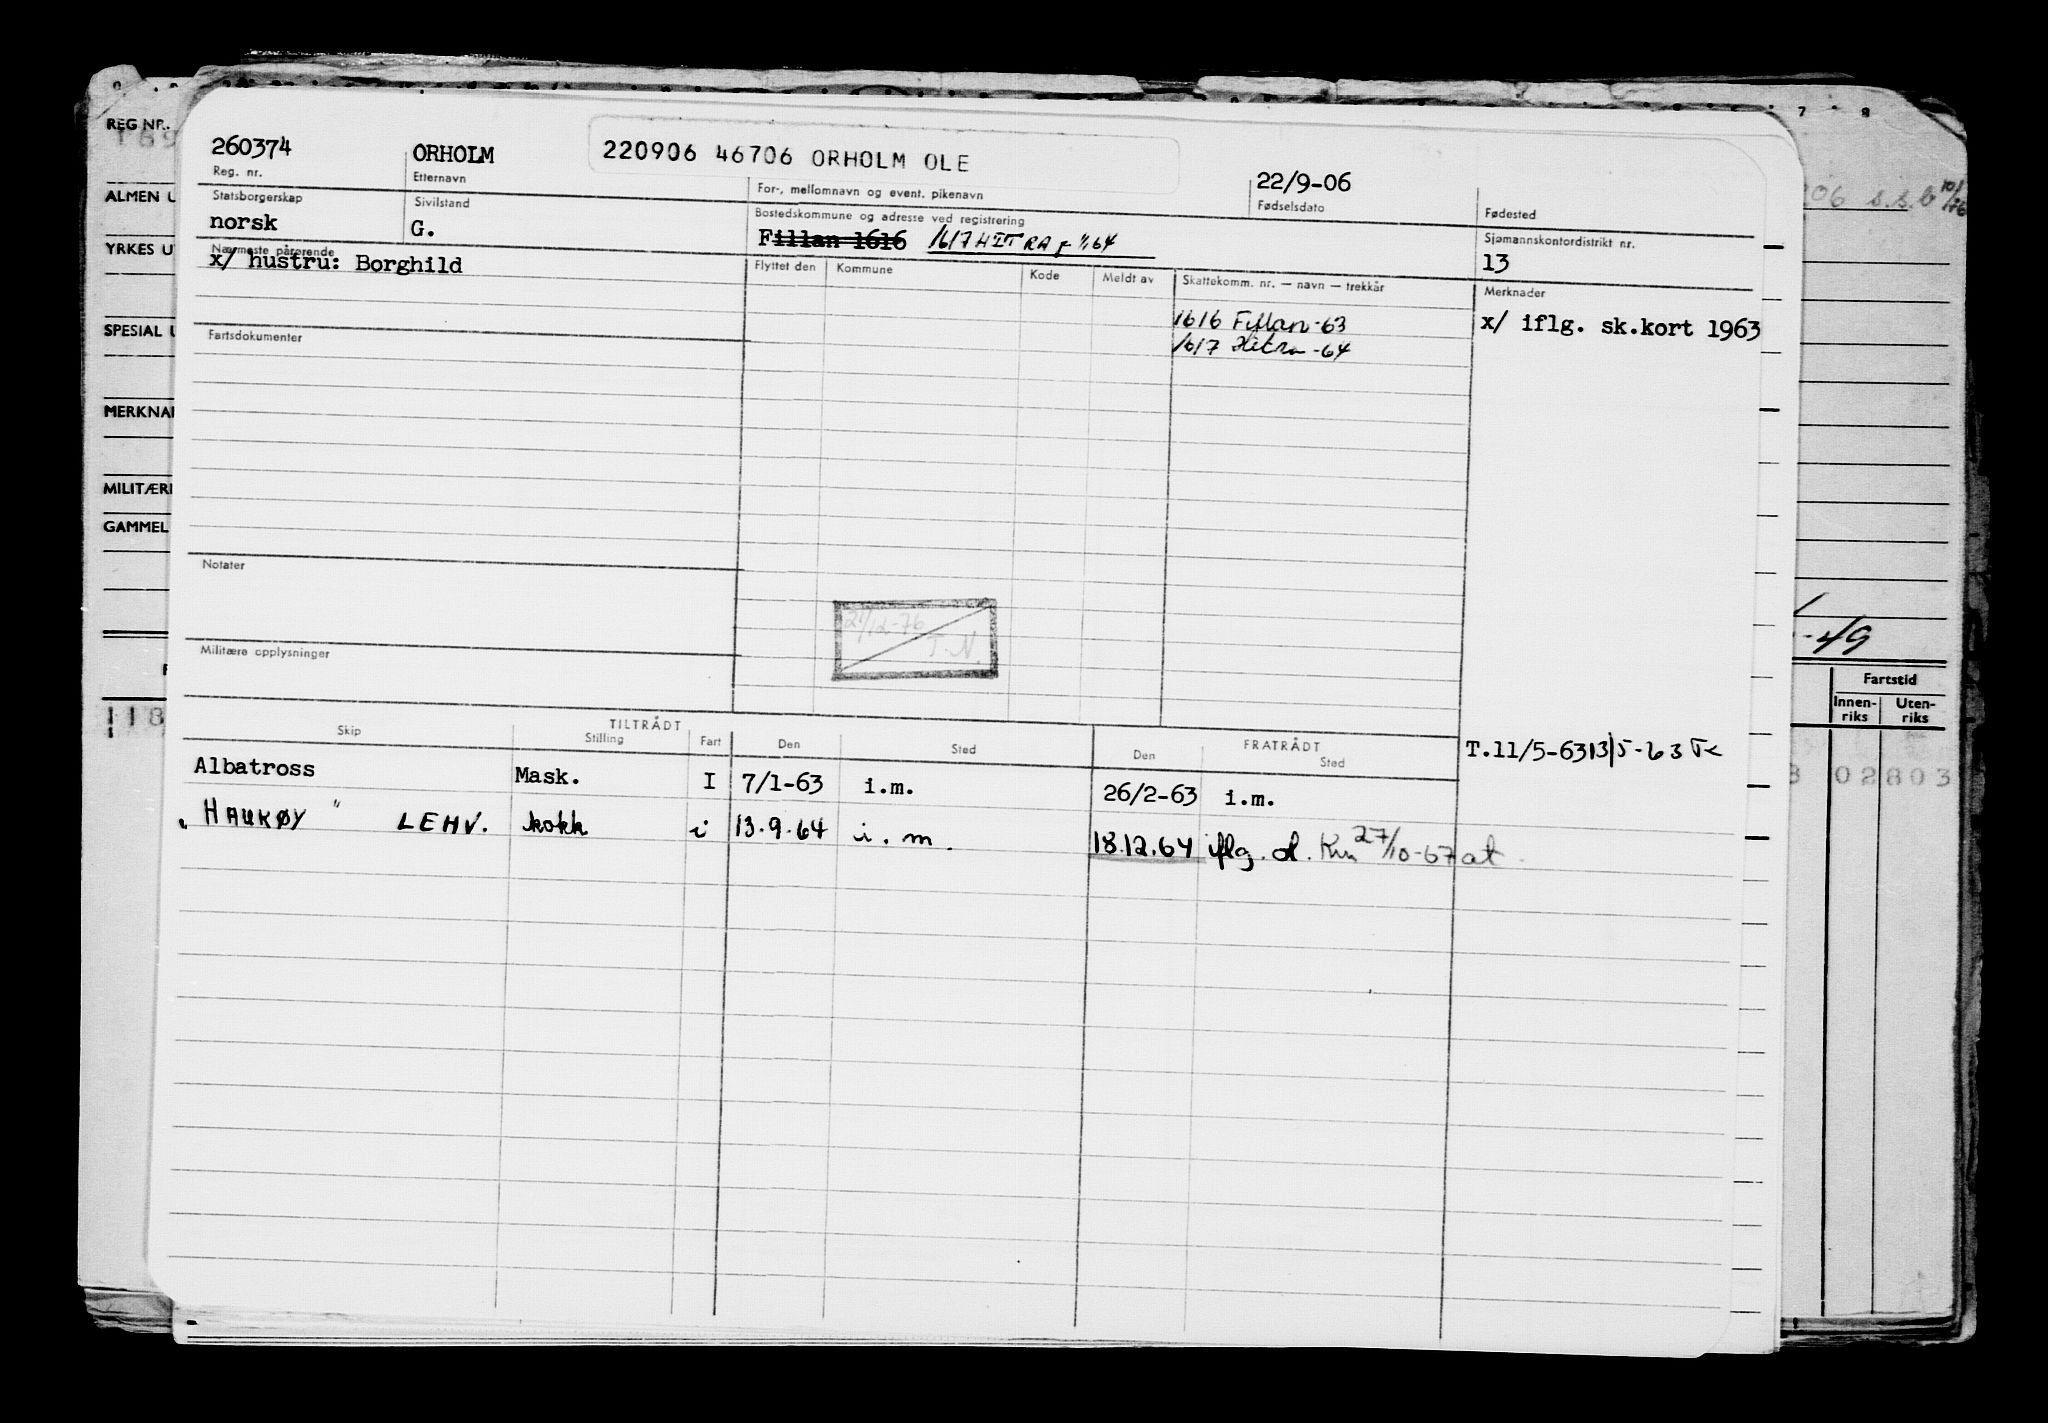 REG NR.
ALMEN U
YRKES U
SPESIAL U
MERKNA
MILITÆR
GAMMEL
118
260374
Reg. nr.
ORHOLM
Etternavn
220906 46706 ORHOLM OLE
For-, mellomnavn og event. pikenavn
22/9-06
Fødselsdato
Fødested
Statsborgerskap
norsk
Sivilstand
G.
Bostedskommune og adresse ved registrering
Fillan 1616 1617 HITRA fr 1/1 64
Sjømannskontordistrikt nr.
13
Nærmeste pårørende
x/ hustru: Borghild
Flyttet den Kommune Kode Meldt av
Skattekomm. nr. — navn — trekkår
1616 Fillan -63
1617 Hitra -64
Merknader
x/ iflg. sk.kort 1963
Fartsdokumenter
Notater
21/12-76
T.N.
Militære opplysninger
Skip
TILTRÅDT
Stilling Fart Den Sted
FRATRÅDT
Den Sted
Albatross Mask. I 7/1-63 i.m. 26/2-63 i.m. T.11/5-63 13/5-63
"HAUKØY" LEHV. kokk i 13.9.64 i.m. 18.12.64 iflg. d. 27/10-67 at
206 s.s.b 10/
-49
Fartstid
Innen-riks Uten-riks
02803